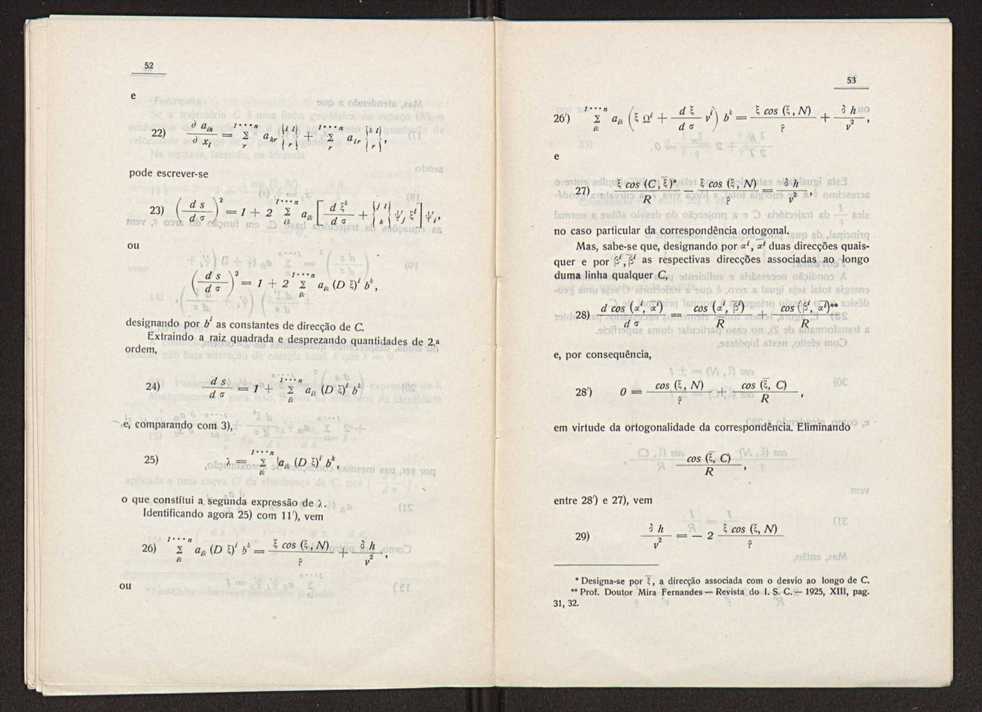 52
e
22) ∂ a_ik / ∂ x_l = Σ_r^{1···n} a_kr {i l / r} + Σ_r^{1···n} a_ir {k l / r},
pode escrever-se
23) (d s / d σ)² = 1 + 2 Σ_ik^{1···n} a_ik [d ξ^k / d σ + {j l / k} ψ'_j ξ^l] ψ'_i,
ou
(d s / d σ)² = 1 + 2 Σ_ik^{1···n} a_ik (D ξ)^i b^k,
designando por b^i as constantes de direcção de C.
Extraindo a raiz quadrada e desprezando quantidades de 2.ª
ordem,
24) d s / d σ = 1 + Σ_ik^{1···n} a_ik (D ξ)^i b^k
e, comparando com 3),
25) λ = Σ_ik^{1···n} a_ik (D ξ)^i b^k,
o que constitui a segunda expressão de λ.
Identificando agora 25) com 11'), vem
26) Σ_ik^{1···n} a_ik (D ξ)^i b^k = ξ cos (ξ, N) / ρ + δ h / v²,
ou
53
26') Σ_ik^{1···n} a_ik (ξ Ω^i + d ξ / d σ ν^i) b^k = ξ cos (ξ, N) / ρ + δ h / v²,
e
27) ξ cos (C, ξ̄)* / R − ξ cos (ξ, N) / ρ = δ h / v²,
no caso particular da correspondência ortogonal.
Mas, sabe-se que, designando por α^i, ᾱ^i duas direcções quais-
quer e por β^i, β̄^i as respectivas direcções associadas ao longo
duma linha qualquer C,
28) d cos (α^i, ᾱ^i) / d σ = cos (α^i, β̄^i) / R + cos (β^i, ᾱ^i)** / R
e, por consequência,
28') 0 = cos (ξ, N) / ρ + cos (ξ̄, C) / R ,
em virtude da ortogonalidade da correspondência. Eliminando
cos (ξ̄, C) / R ,
entre 28') e 27), vem
29) δ h / v² = − 2 ξ cos (ξ, N) / ρ
* Designa-se por ξ̄, a direcção associada com o desvio ao longo de C.
** Prof. Doutor Mira Fernandes — Revista do I. S. C. — 1925, XIII, pag.
31, 32.